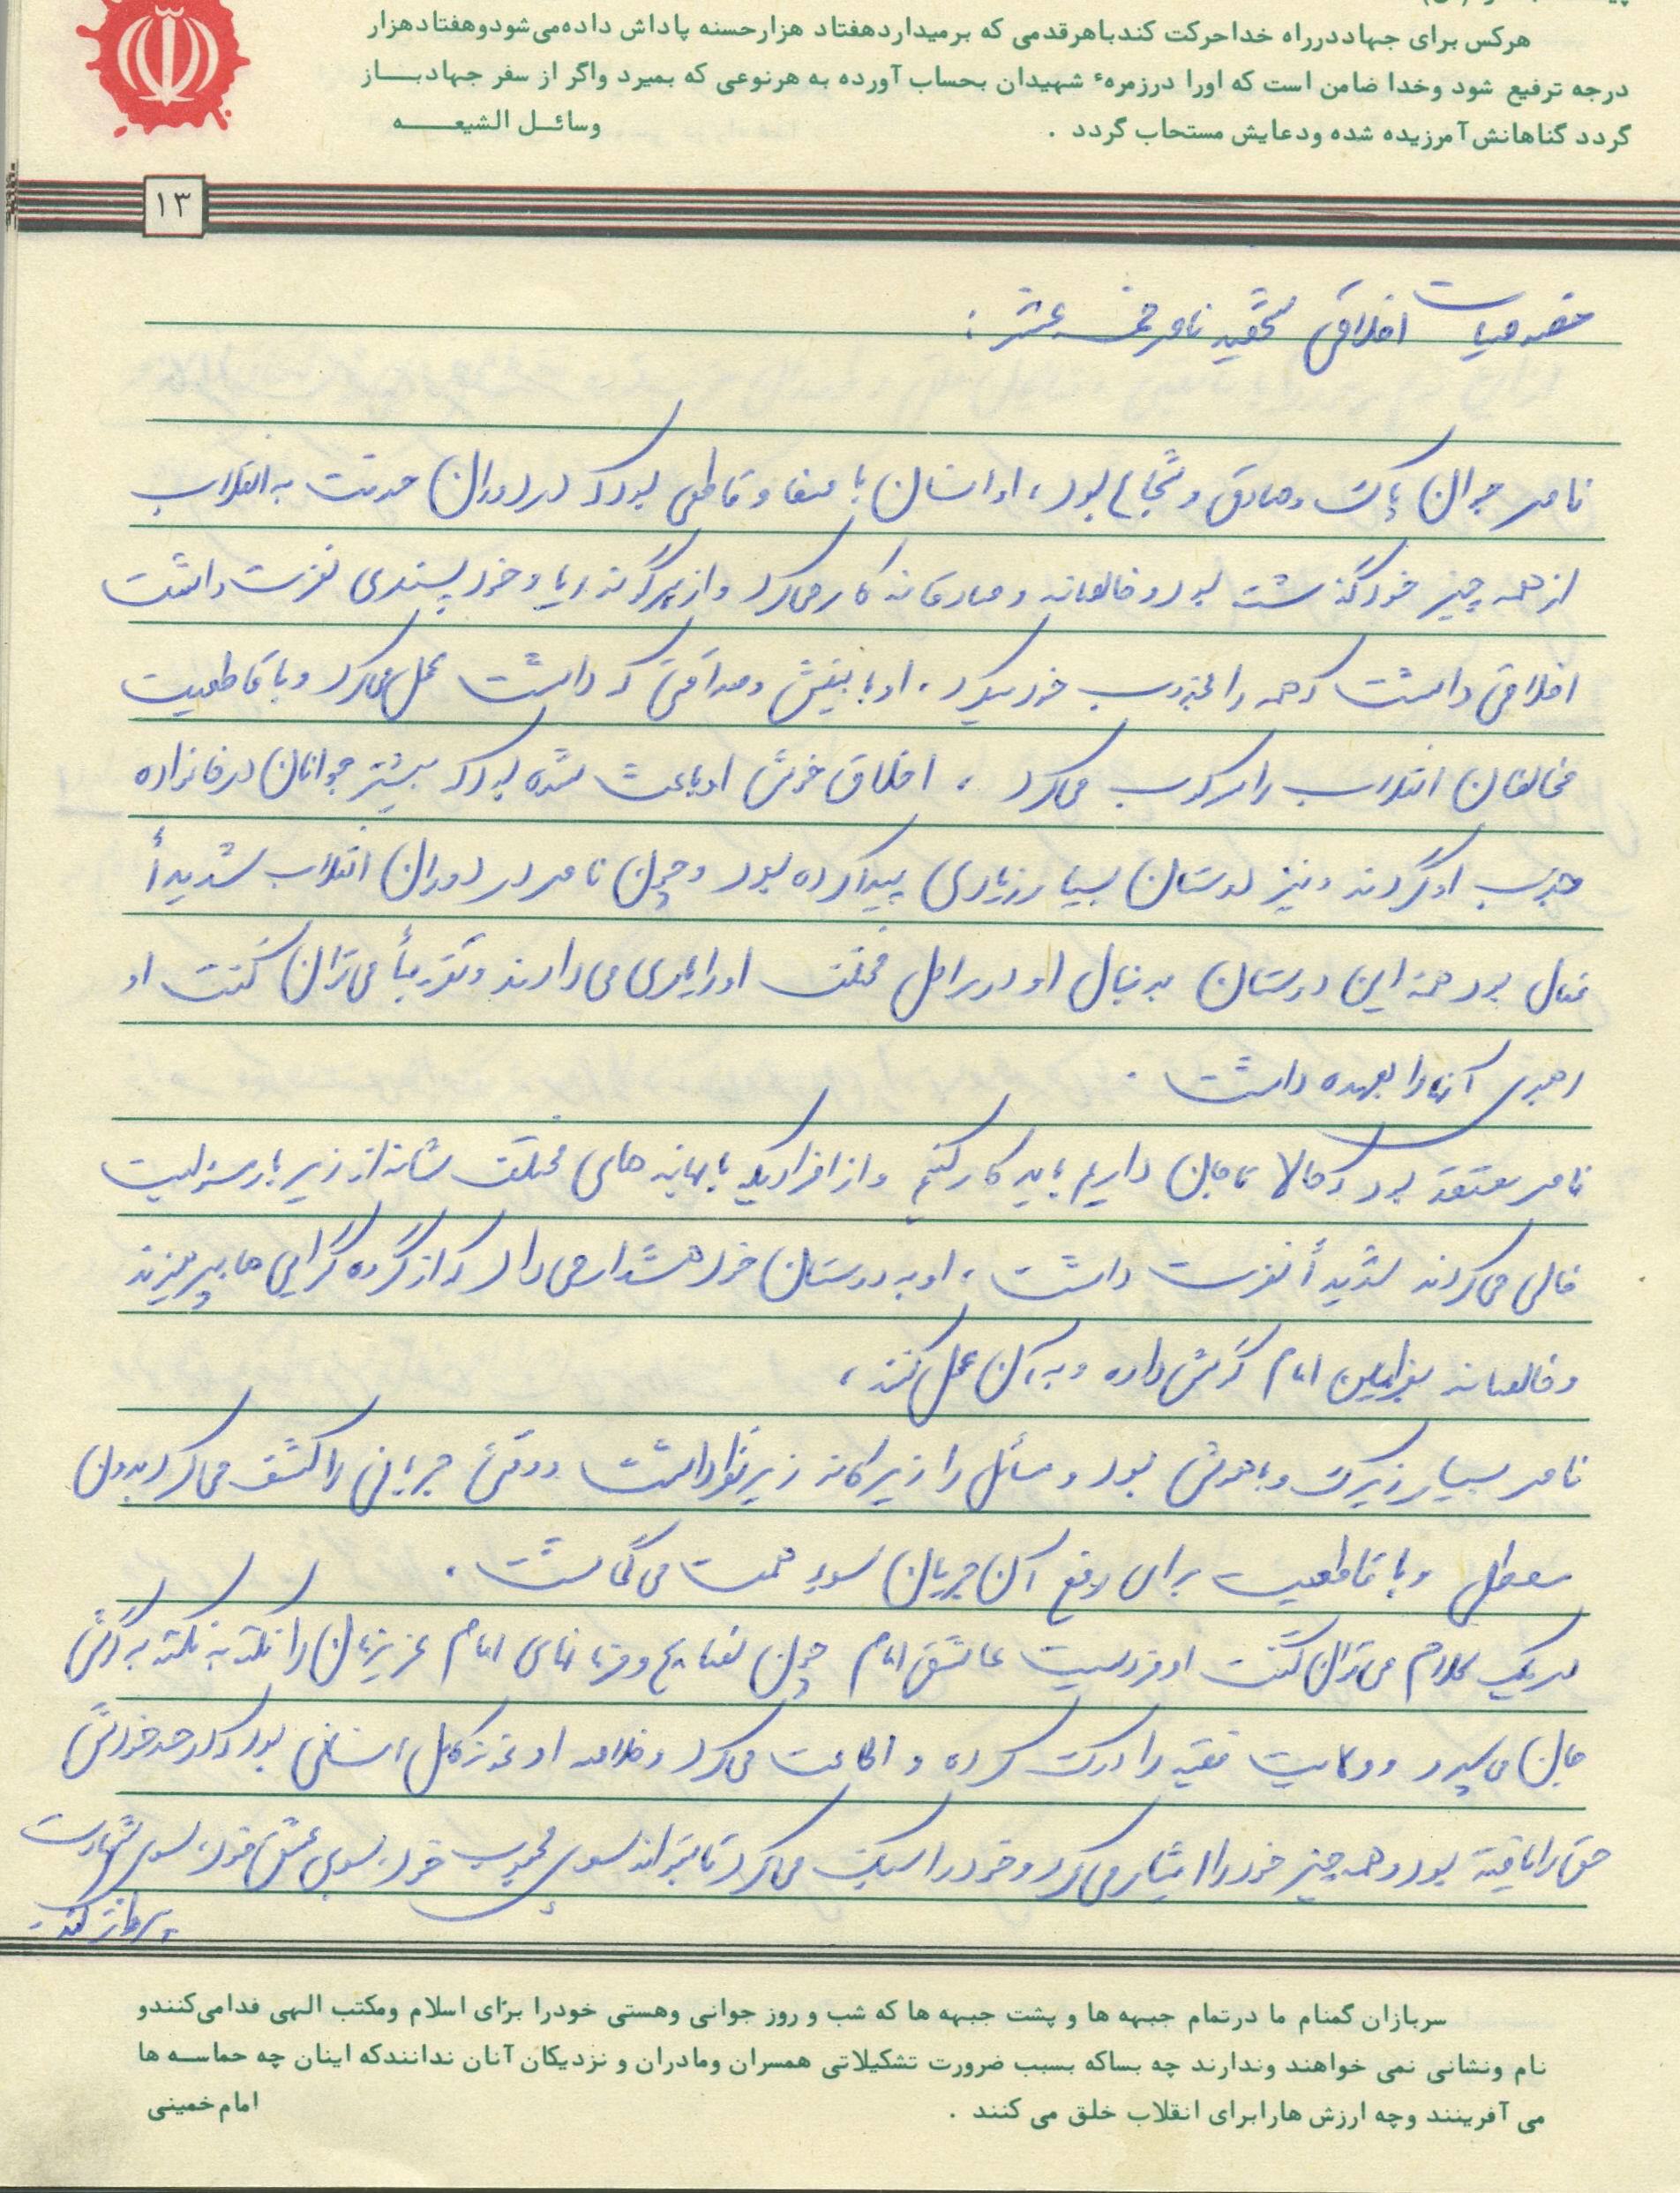 هرکس برای جهاددرراه خداحرکت کندباهرقدمی که برمیداردهفتاد هزارحسنه پاداش داده‌می‌شودوهفتادهزار
درجه ترفیع شود وخدا ضامن است که اورا درزمرهٔ شهیدان بحساب آورده به هرنوعی که بمیرد واگر از سفر جهادبـــاز
گردد گناهانش آمرزیده شده ودعایش مستحاب گردد .
وسائــل الشیعــــه
۱۳
خصوصیات اخلاقی شهید ناصر :
ناصر جوان پاک و صادق و شجاع بود، او انسان با صفا و قاطعی بود که در دوران خدمت به انقلاب
از همه چیز خود گذشته بود و خالصانه و صادقانه کار می‌کرد و از هرگونه ریا و خود پسندی نفرت داشت
اخلاقی داشت که همه را مجذوب خود میکرد ، او با بینش و صداقتی که داشت عمل می‌کرد و با قاطعیت
مخالفان انقلاب را سرکوب می‌کرد ، اخلاق خوش او باعث شده بود که بیشتر جوانان در خانواده
جذب او گردند و نیز دوستان بسیار زیادی پیدا کرده بود و چون ناصر در دوران انقلاب شدیداً
فعال بود همهٔ این دوستان به دنبال او در مراحل مختلف او را یاری می‌دادند و تقریباً می‌توان گفت او
رهبری آنها را بعهده داشت .
ناصر معتقد بود که حالا تا جان داریم باید کار کنیم و از افرادیکه با بهانه های مختلف شانه از زیر بار مسئولیت
خالی می‌کردند شدیداً نفرت داشت ، او به دوستان خود هشدار می‌داد که از گروه گرایی ها بپرهیزند
و خالصانه بفرامین امام گوش داده و به آن عمل کنند ،
ناصر بسیار زیرک و باهوش بود و مسائل را زیرکانه زیر نظر داشت و وقتی جریانی را کشف می‌کرد بدون
معطلی و با قاطعیت برای رفع آن جریان سوء همت می‌گماشت .
در یک کلام می‌توان گفت او فردیست عاشق امام چون نصایح و فرمانهای امام عزیزمان را نکته به نکته به گوش
جان می‌سپرد و ولایت فقیه را درک کرده و اطاعت می‌کرد و خلاصه او نمونه کامل انسانی بود که در حد خودش
حق را یافته بود و همه چیز خود را ایثار می‌کرد و خود را سبک می‌کرد تا بتواند بسوی محبوب خود، بسوی عشق خود، بسوی شهادت
پرواز کند .
سربازان گمنام ما درتمام جبهه ها و پشت جبهه ها که شب و روز جوانی وهستی خودرا برای اسلام ومکتب الهی فدامی‌کنندو
نام ونشانی نمی خواهند وندارند چه بساکه بسبب ضرورت تشکیلاتی همسران ومادران و نزدیکان آنان ندانندکه اینان چه حماسه ها
می آفرینند وچه ارزش هارابرای انقلاب خلق می کنند .
امام خمینی